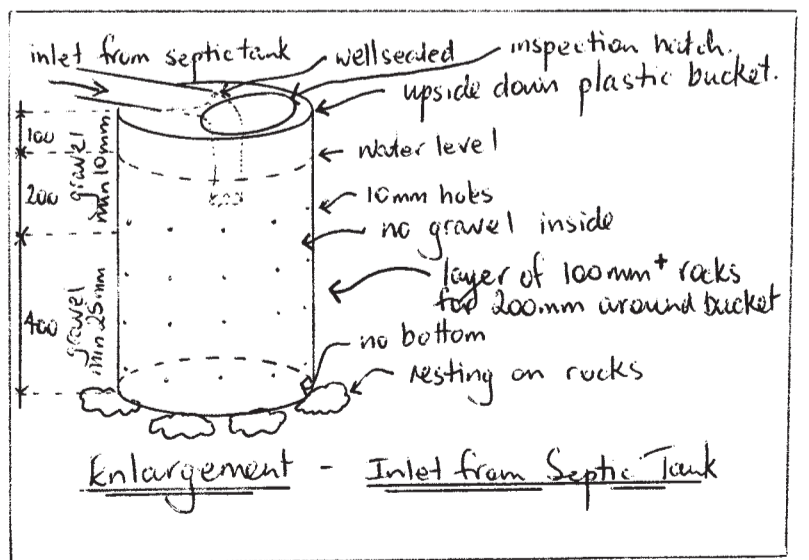 inlet from septic tank
well sealed
inspection hatch.
upside down plastic bucket.
100
200
gravel
min 10mm.
water level
10mm holes
no gravel inside
layer of 100mm+ rocks
for 200mm around bucket
400
gravel
min 25mm
no bottom
resting on rocks
Enlargement - Inlet from Septic Tank